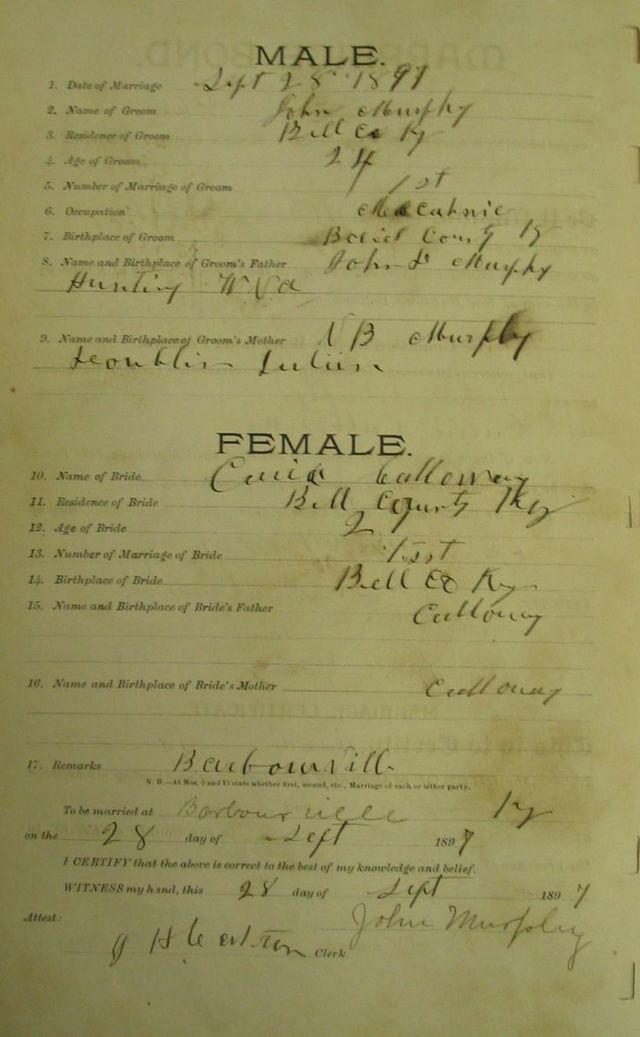 MALE.
1. Date of Marriage Sept 28 1897
2. Name of Groom John Murphy
3. Residence of Groom Bell Co Ky
4. Age of Groom 24
5. Number of Marriage of Groom 1st
6. Occupation
7. Birthplace of Groom County Ky
8. Name and Birthplace of Groom's Father John Murphy
W Va
9. Name and Birthplace of Groom's Mother B Murphy
FEMALE.
10. Name of Bride Calloway
11. Residence of Bride Bell County Ky
12. Age of Bride 2
13. Number of Marriage of Bride 1st
14. Birthplace of Bride Bell Co Ky
15. Name and Birthplace of Bride's Father Calloway
16. Name and Birthplace of Bride's Mother Calloway
17. Remarks Barbourvill
N. B.—At Nos. 5 and 13 state whether first, second, etc., Marriage of each or either party.
To be married at Barbourville Ky
on the 28 day of Sept 1897
I CERTIFY that the above is correct to the best of my knowledge and belief.
WITNESS my hand, this 28 day of Sept 1897
Attest: John Murphy
J H Clerk